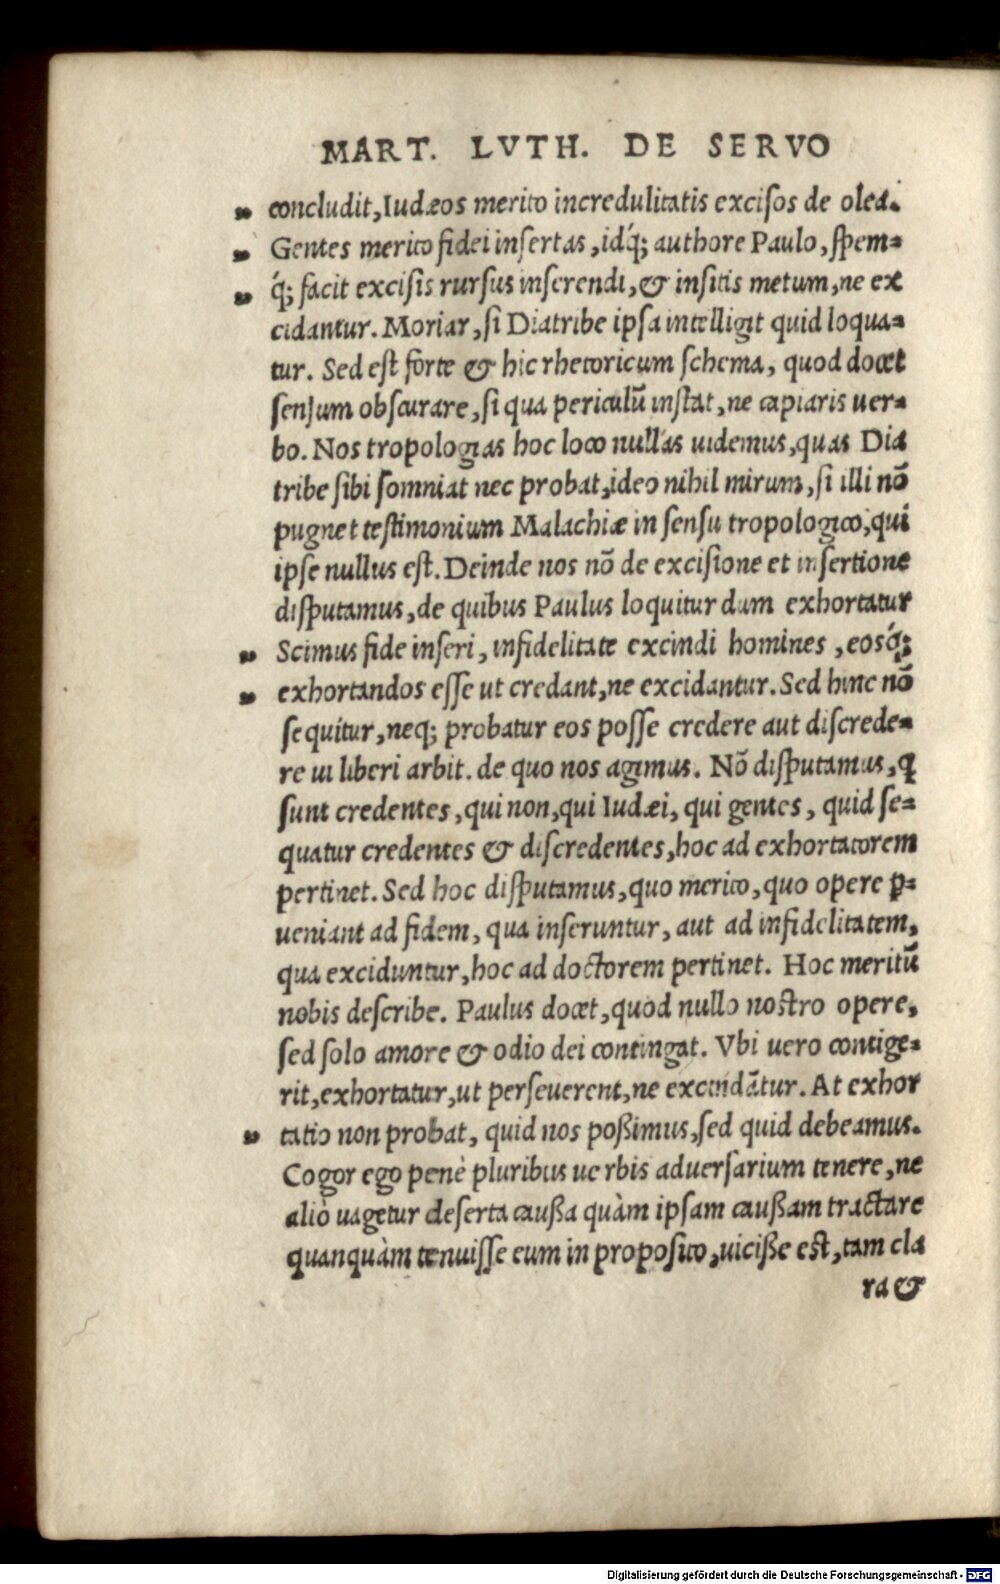 MART. LVTH. DE SERVO
„ concludit, Iudæos merito incredulitatis exciſos de olea.
„ Gentes merito fidei inſertas, idq́; authore Paulo, ſpem=
„ q́; facit exciſis rurſus inſerendi, & inſitis metum, ne ex
cidantur. Moriar, ſi Diatribe ipſa intelligit quid loqua=
tur. Sed eſt forte & hic rhetoricum ſchema, quod docet
ſenſum obſcurare, ſi qua periculū inſtat, ne capiaris uer=
bo. Nos tropologias hoc loco nullas uidemus, quas Dia
tribe ſibi ſomniat nec probat, ideo nihil mirum, ſi illi nō
pugnet teſtimonium Malachiæ in ſenſu tropologico, qui
ipſe nullus eſt. Deinde nos nō de exciſione et inſertione
diſputamus, de quibus Paulus loquitur dum exhortatur
„ Scimus fide inſeri, infidelitate excindi homines, eosq́;
„ exhortandos eſſe ut credant, ne excidantur. Sed hinc nō
ſequitur, neq; probatur eos poſſe credere aut diſcrede=
re ui liberi arbit. de quo nos agimus. Nō diſputamus, q
ſunt credentes, qui non, qui Iudæi, qui gentes, quid ſe=
quatur credentes & diſcredentes, hoc ad exhortatorem
pertinet. Sed hoc diſputamus, quo merito, quo opere p=
ueniant ad fidem, qua inſeruntur, aut ad infidelitatem,
qua exciduntur, hoc ad doctorem pertinet. Hoc meritū
nobis deſcribe. Paulus docet, quòd nullo noſtro opere,
ſed ſolo amore & odio dei contingat. Vbi uero contige=
rit, exhortatur, ut perſeuerent, ne excindātur. At exhor
„ tatio non probat, quid nos poßimus, ſed quid debeamus.
Cogor ego penè pluribus uerbis aduerſarium tenere, ne
aliò uagetur deſerta cauſſa quàm ipſam cauſſam tractare
quanquàm tenuiſſe eum in propoſito, uiciſſe eſt, tam cla
ra &
Digitalisierung gefördert durch die Deutsche Forschungsgemeinschaft - DFG